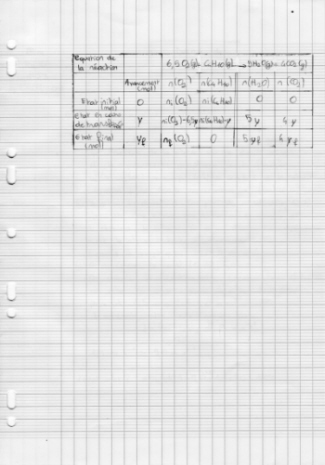 Equation de la réaction 6,5 O₂(g) + C₄H₁₀(g) → 5H₂O(g) + 4CO₂(g)
Avancement (mol) n(O₂) n(C₄H₁₀) n(H₂O) n(CO₂)
Etat initial (mol) 0 nᵢ(O₂) nᵢ(C₄H₁₀) 0 0
Etat en cours de y n(O₂)-6,5y n(C₄H₁₀)-y 5y 4y
Etat final (mol) yf nf(O₂) 0 5yf 4yf